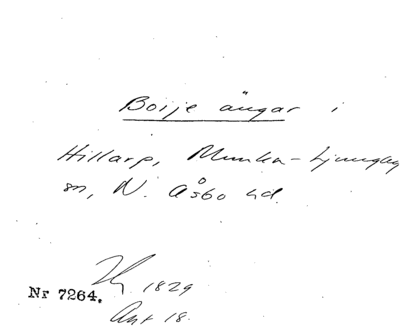 Boije ängar i
Hillarp, Munka-Ljungby
sn, N. Åsbo hd.
1829
Nr 7264.
Akt 18.